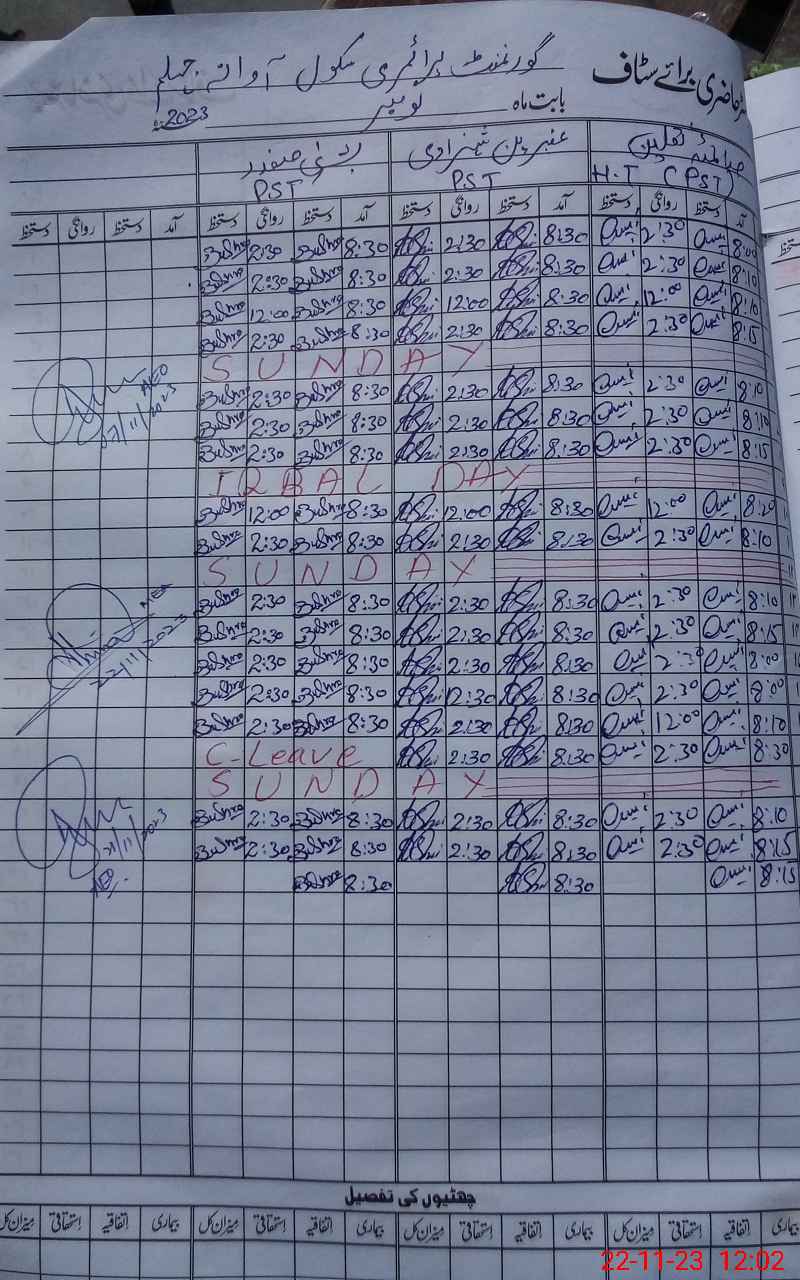 حاضری برائے سٹاف گورنمنٹ پرائمری سکول آوانہ جہلم
بابت ماہ نومبر 2023ء
عنبرین شہزادی بشریٰ صفدر
H.T (PST) PST PST
آمد دستخط روانگی دستخط آمد دستخط روانگی دستخط آمد دستخط روانگی دستخط آمد دستخط روانگی دستخط
8:00 2:30 8:30 2:30 8:30 Bushra 2:30 Bushra
8:10 2:30 8:30 2:30 8:30 Bushra 2:30 Bushra
8:10 12:00 8:30 12:00 8:30 Bushra 12:00 Bushra
8:15 2:30 8:30 2:30 8:30 Bushra 2:30 Bushra
SUNDAY
8:10 2:30 8:30 2:30 8:30 Bushra 2:30 Bushra
8:10 2:30 8:30 2:30 8:30 Bushra 2:30 Bushra
8:15 2:30 8:30 2:30 8:30 Bushra 2:30 Bushra
AEO
IQBAL DAY
8:20 12:00 8:30 12:00 8:30 Bushra 12:00 Bushra
8:10 2:30 8:30 2:30 8:30 Bushra 2:30 Bushra
SUNDAY
8:10 2:30 8:30 2:30 8:30 Bushra 2:30 Bushra
8:15 2:30 8:30 2:30 8:30 Bushra 2:30 Bushra
8:00 2:30 8:30 2:30 8:30 Bushra 2:30 Bushra
8:00 2:30 8:30 12:30 8:30 Bushra 2:30 Bushra
8:10 12:00 8:30 2:30 8:30 Bushra 2:30 Bushra
AEO
22/11/2023
8:30 2:30 8:30 2:30 C-Leave
SUNDAY
8:10 2:30 8:30 2:30 8:30 Bushra 2:30 Bushra
8:15 2:30 8:30 2:30 8:30 Bushra 2:30 Bushra
8:15 8:30 8:30 Bushra
21/11/2023
AEO
چھٹیوں کی تفصیل
بیماری اتفاقیہ استحقاقی میزان کل بیماری اتفاقیہ استحقاقی میزان کل بیماری اتفاقیہ استحقاقی میزان کل بیماری اتفاقیہ استحقاقی میزان کل
22-11-23 12:02